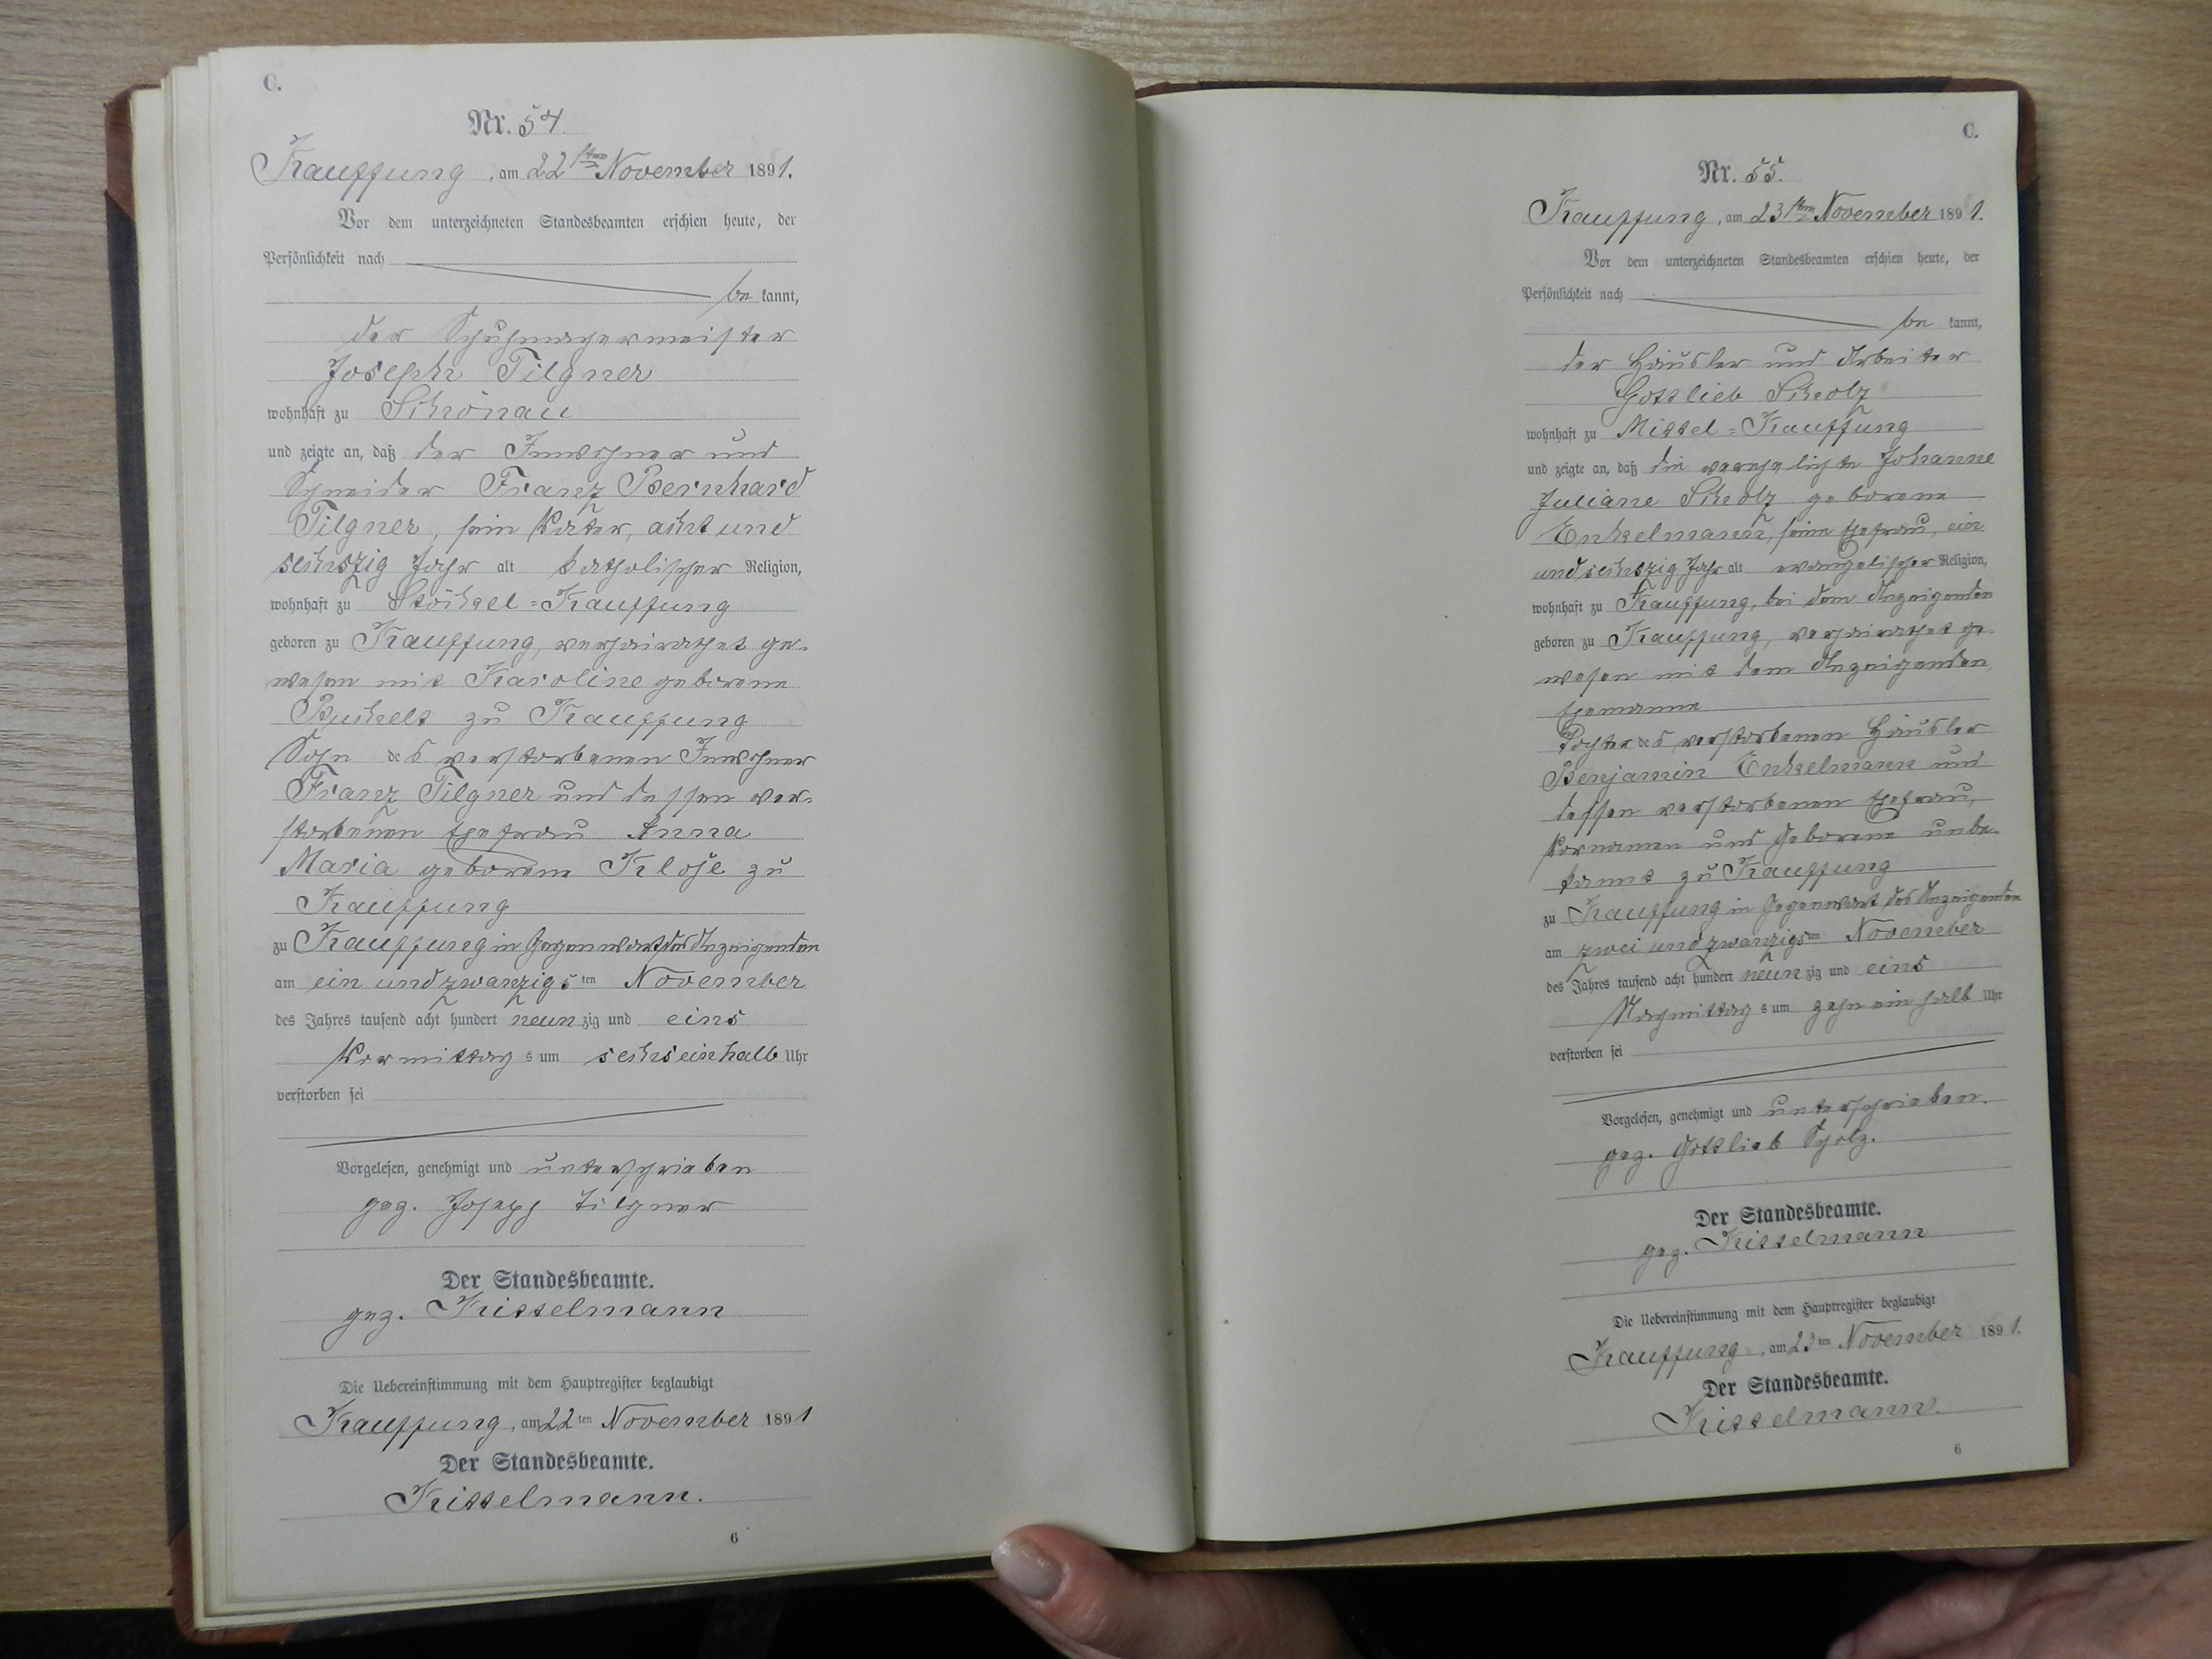 C.
Nr. 54.
Kauffung, am 22sten November 1891.
Vor dem unterzeichneten Standesbeamten erschien heute, der
Persönlichkeit nach
be kannt,
der Schuhmachermeister
Joseph Tilgner
wohnhaft zu Schönau
und zeigte an, daß der Inwohner und
Schneider Franz Bernhard
Tilgner, sein Vater, acht und
sechszig Jahr alt katholischer Religion,
wohnhaft zu Stöckel=Kauffung
geboren zu Kauffung, verheirathet ge-
wesen mit Karoline geborene
zu Kauffung
Sohn des verstorbenen Inwohner
Franz Tilgner und dessen ver-
storbenen Ehefrau Anna
Maria geborene Klose zu
Kauffung
zu Kauffung in Gegenwart des Anzeigenden
am ein und zwanzigsten November
des Jahres tausend acht hundert neunzig und eins
Vormittags um sechseinhalb Uhr
verstorben sei
Vorgelesen, genehmigt und unterschrieben
gez. Joseph Tilgner
Der Standesbeamte.
gez. Kisselmann
Die Uebereinstimmung mit dem Hauptregister beglaubigt
Kauffung, am 22ten November 1891
Der Standesbeamte.
Kisselmann.
6
C.
Nr. 55.
Kauffung, am 23sten November 1891.
Vor dem unterzeichneten Standesbeamten erschien heute, der
Persönlichkeit nach
be kannt,
der Häusler und Arbeiter
Gottlieb Scholz
wohnhaft zu Mittel=Kauffung
und zeigte an, daß die verehelichte Johanne
Juliane Scholz geborene
Enkelmann, seine Ehefrau, ein
und sechszig Jahr alt evangelischer Religion,
wohnhaft zu Kauffung, bei dem Anzeigenden
geboren zu Kauffung, verheirathet ge-
wesen mit dem Anzeigenden,
Ehemanne
Tochter des verstorbenen Häusler
Benjamin Enkelmann und
dessen verstorbenen Ehefrau,
Vornamen und Geborene unbe-
kannt zu Kauffung
zu Kauffung in Gegenwart des Anzeigenden
am zwei und zwanzigsten November
des Jahres tausend acht hundert neunzig und eins
Nachmittags um zehn ein halb Uhr
verstorben sei
Vorgelesen, genehmigt und unterschrieben.
gez. Gottlieb Scholz.
Der Standesbeamte.
gez. Kisselmann
Die Uebereinstimmung mit dem Hauptregister beglaubigt
Kauffung, am 23ten November 1891.
Der Standesbeamte.
Kisselmann.
6